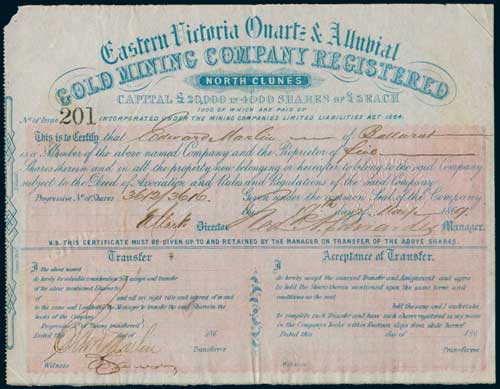 Eastern Victoria Quartz & Alluvial
GOLD MINING COMPANY REGISTERED
NORTH CLUNES
CAPITAL £20,000 IN 4000 SHARES OF £5 EACH
1000 OF WHICH ARE PAID UP
No. of Issue 201 INCORPORATED UNDER THE MINING COMPANIES LIMITED LIABILITIES ACT 1864.
This is to Certify that Edward Martin of Ballarat
is a Member of the above named Company and the Proprietor of five
Shares therein and in all the property now belonging or hereafter to belong to the said Company
subject to the Deed of Association and Rules and Regulations of the said Company.
Progressive No. of Shares 3612/3616 Given under the common Seal of the Company
this day of 186
Director Manager.
N.B. THIS CERTIFICATE MUST BE GIVEN UP TO AND RETAINED BY THE MANAGER ON TRANSFER OF THE ABOVE SHARES.
Transfer
I the above named
do hereby for valuable consideration assign and transfer
of the above mentioned Shares
of and all my right title and interest of in and
to the same and I authorise the Manager to transfer the said Shares in the
books of the Company
Progressive No. of Shares transferred
Dated this day of 186
Transferror
Witness
Acceptance of Transfer.
I
do hereby accept the annexed Transfer and Assignment and agree
to hold the Shares therein mentioned upon the same terms and
conditions as the said
held the same and I undertake
to complete such Transfer and have such shares registered in my name
in the Company's books within fourteen days from date hereof
Dated this day of 186
Transferree
Witness